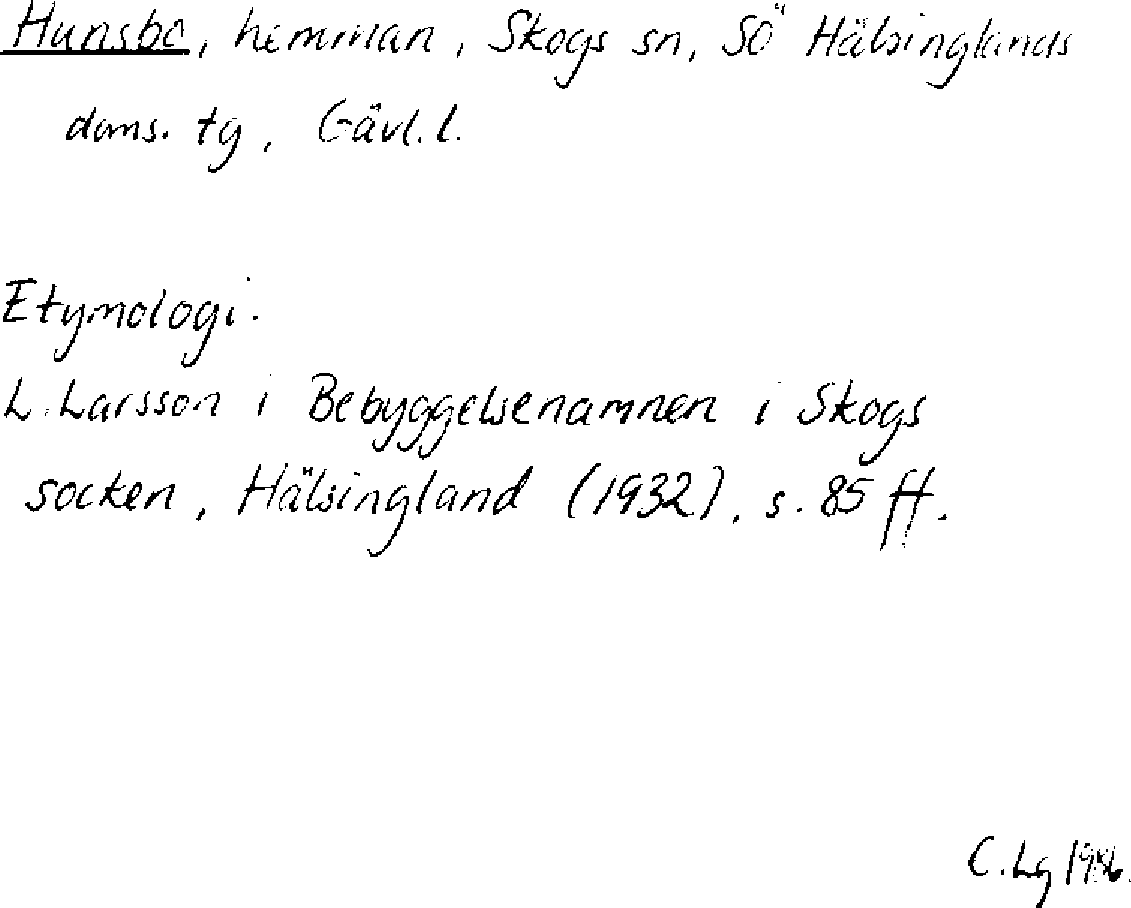 Hunsbo, hemman, Skogs sn, SÖ Hälsinglands
doms. tg, Gävl. l.
Etymologi.
L. Larsson i Bebyggelsenamnen i Skogs
socken, Hälsingland (1932), s. 85 ff.
C. Lg 1986.